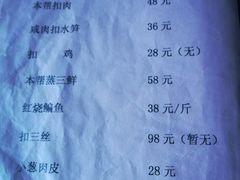 本帮扣肉 48元
咸肉扣水笋 36元
扣鸡 28元(无)
本帮蒸三鲜 58元
红烧鳊鱼 38元/斤
扣三丝 98元(暂无)
小葱肉皮 28元